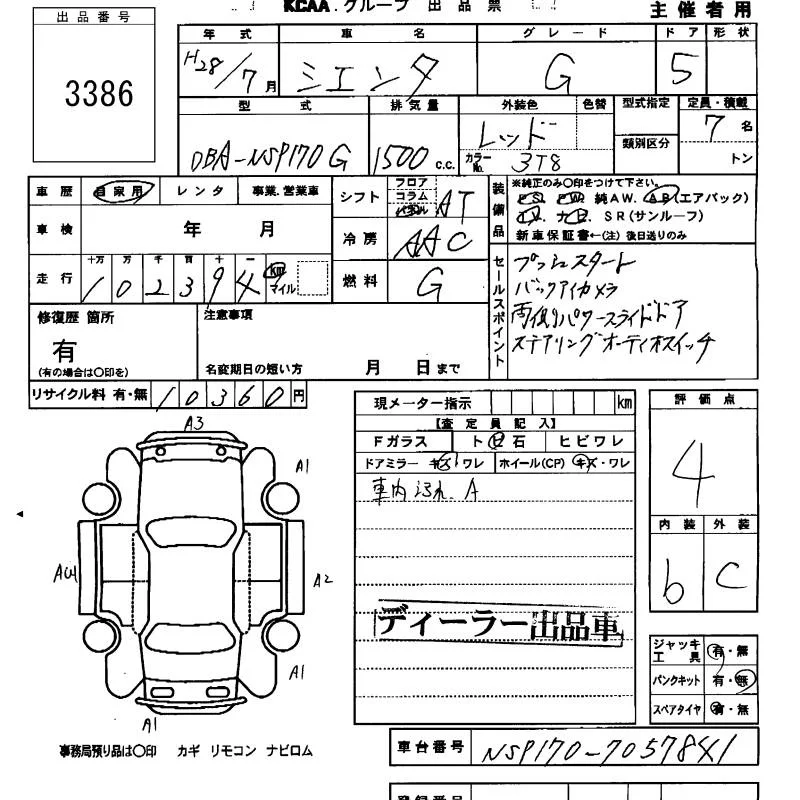 KCAA.グループ 出品票
主催者用
出品番号
3386
年式 車名 グレード ドア 形状
H28/7月 シエンタ G 5
型式 排気量 外装色 色替 型式指定 定員・積載
DBA-NSP170G 1500 c.c. レッド 類別区分 7名
カラーNo. 3T8 トン
車歴 自家用 レンタ 事業.営業車
シフト フロア コラム AT
装備品 ※純正のみ〇印をつけて下さい。
純AW. AB(エアバック)
SR(サンルーフ)
新車保証書←(注) 後日送りのみ
車検 年 月
冷房 AAC
走行 十万 万 千 百 十 一
102394 km マイル
燃料 G
セールスポイント
プッシュスタート
バックアイカメラ
両側パワースライドドア
ステアリングオーディオスイッチ
修復歴 箇所
有
(有の場合は〇印を)
注意事項
名変期日の短い方 月 日まで
リサイクル料 有・無 10360円
現メーター指示 km
【査定員記入】
Fガラス ト日石 ヒビワレ
ドアミラー キズ・ワレ ホイール(CP) キズ・ワレ
車内 汚れ. A
ディーラー出品車
評価点
4
内装 外装
b C
A3
A1
A2
A1
A1
ジャッキ工具 有・無
パンクキット 有・無
スペアタイヤ 有・無
事務局預り品は〇印 カギ リモコン ナビロム
車台番号 NSP170-7057841
登録番号